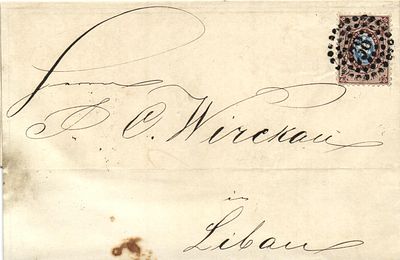 Herrn
J. C. Wirckau
in
Libau